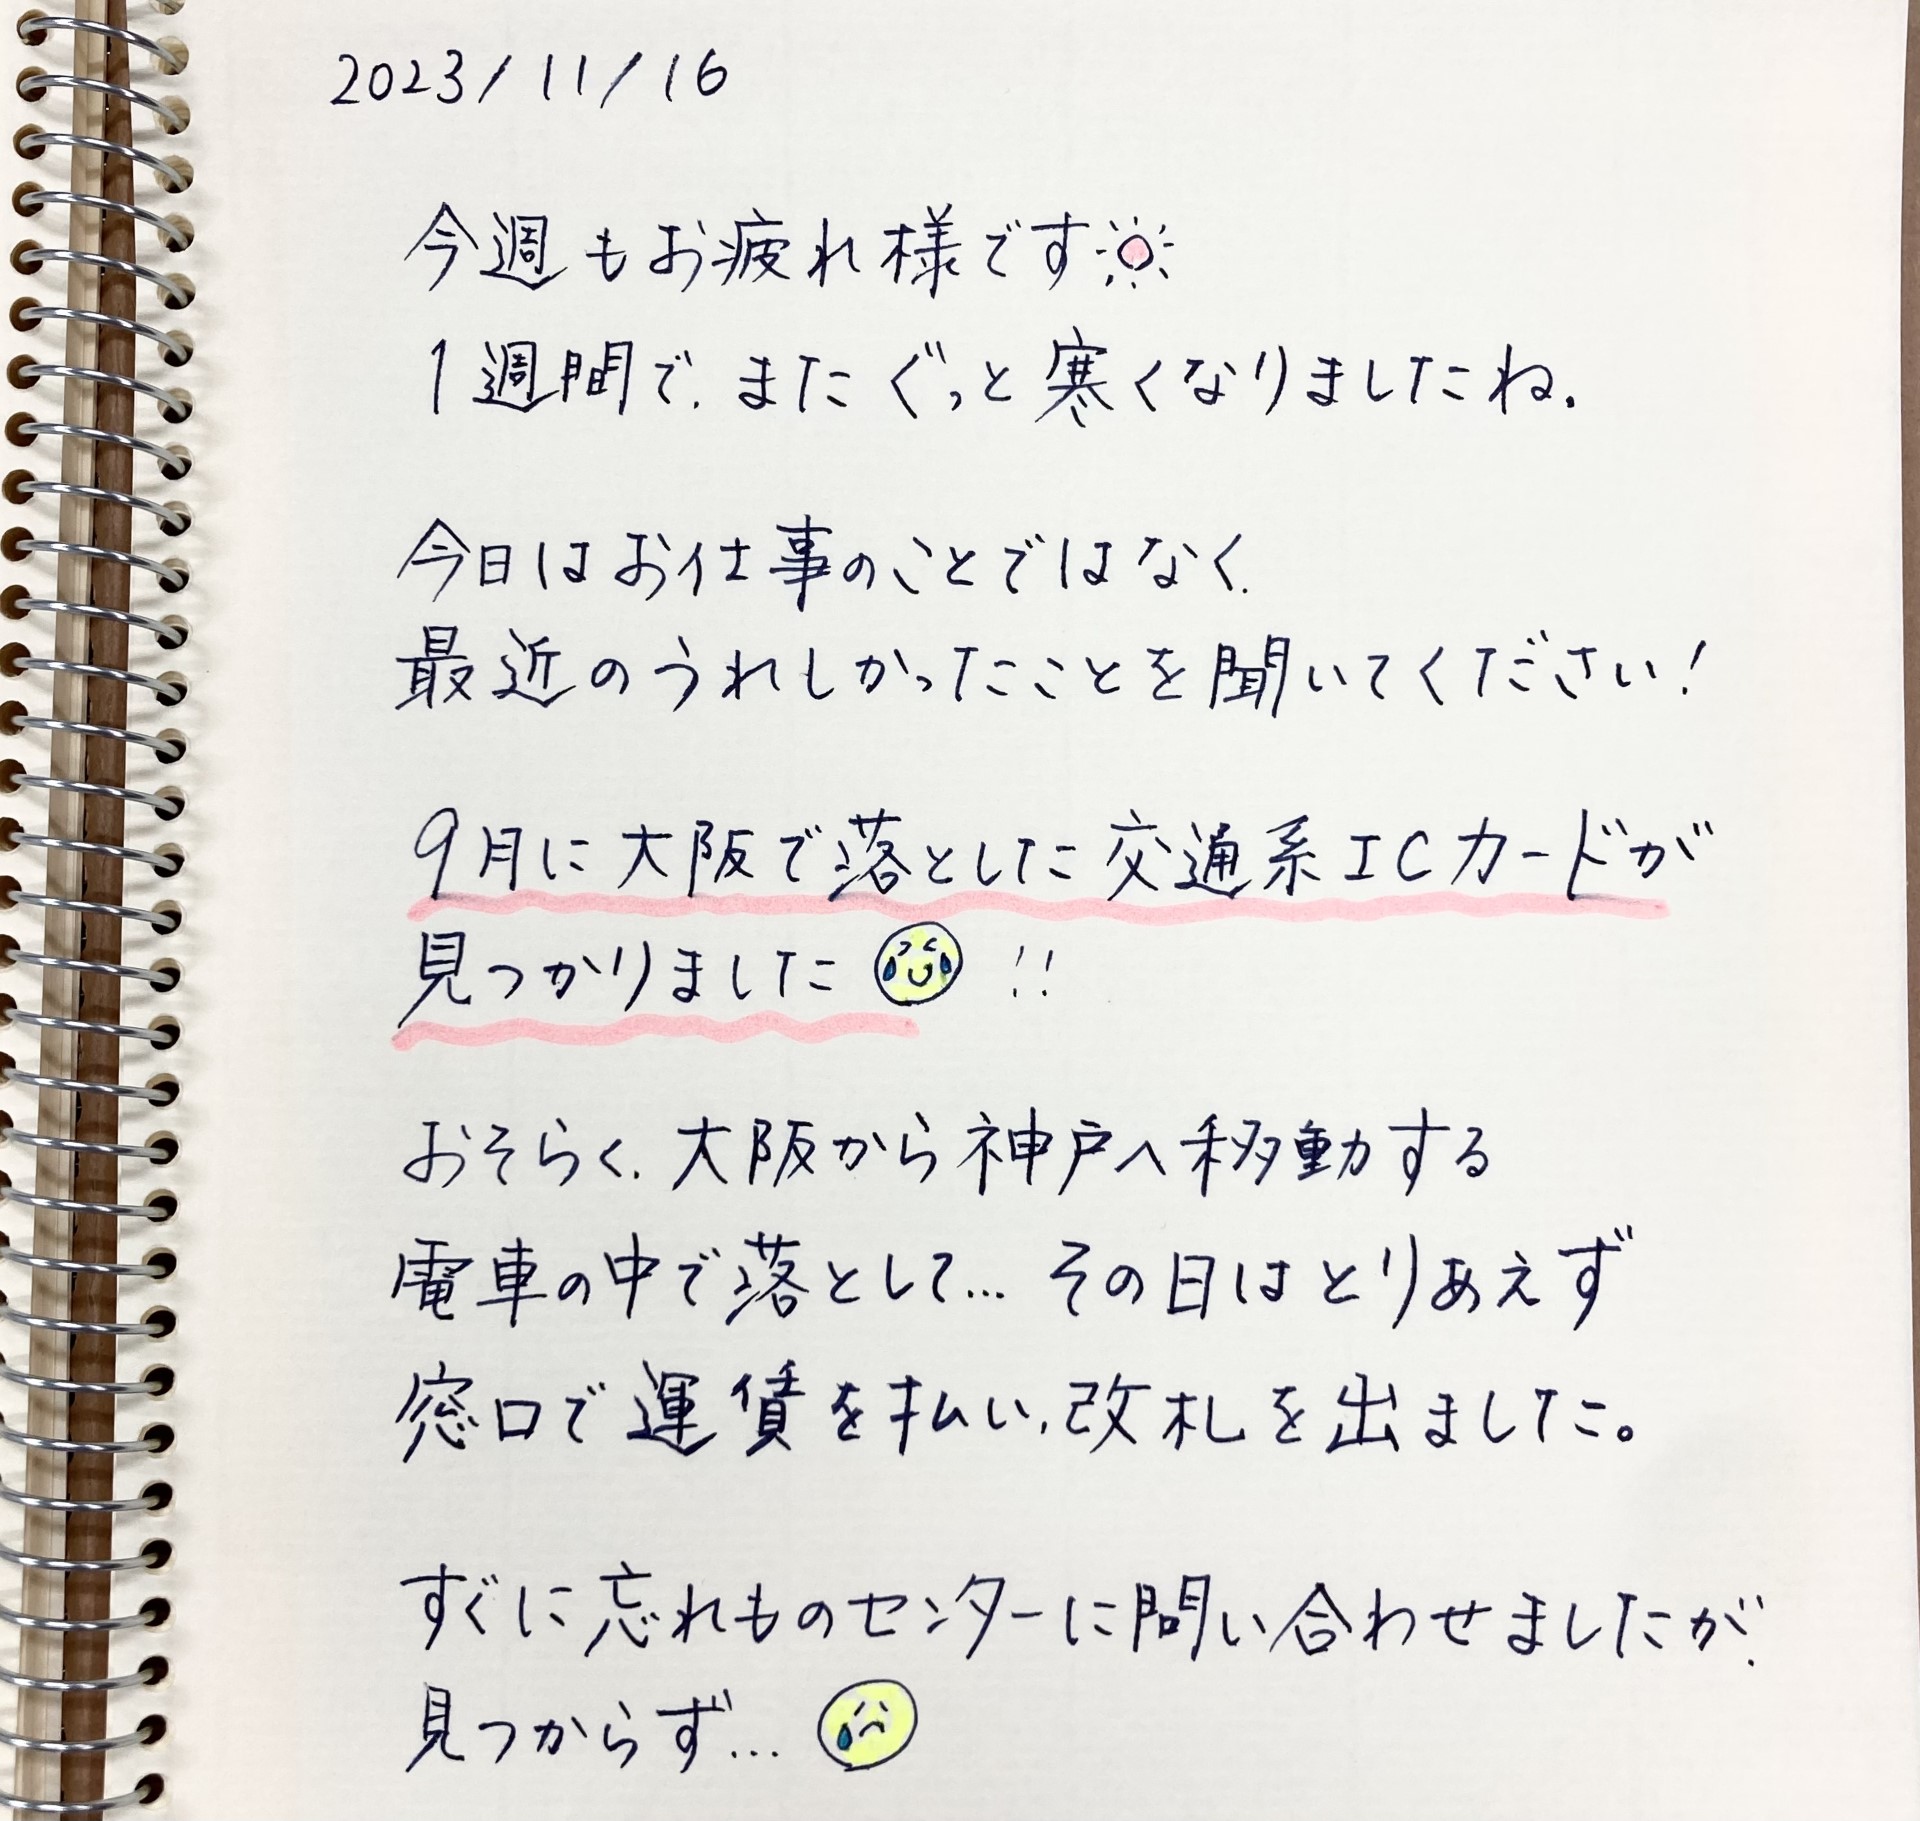 2023/11/16
今週もお疲れ様です
1週間で、またぐっと寒くなりましたね。
今日はお仕事のことではなく、
最近のうれしかったことを聞いてください!
9月に大阪で落とした交通系ICカードが
見つかりました!!
おそらく、大阪から神戸へ移動する
電車の中で落として… その日はとりあえず
窓口で運賃を払い、改札を出ました。
すぐに忘れものセンターに問い合わせましたが、
見つからず…